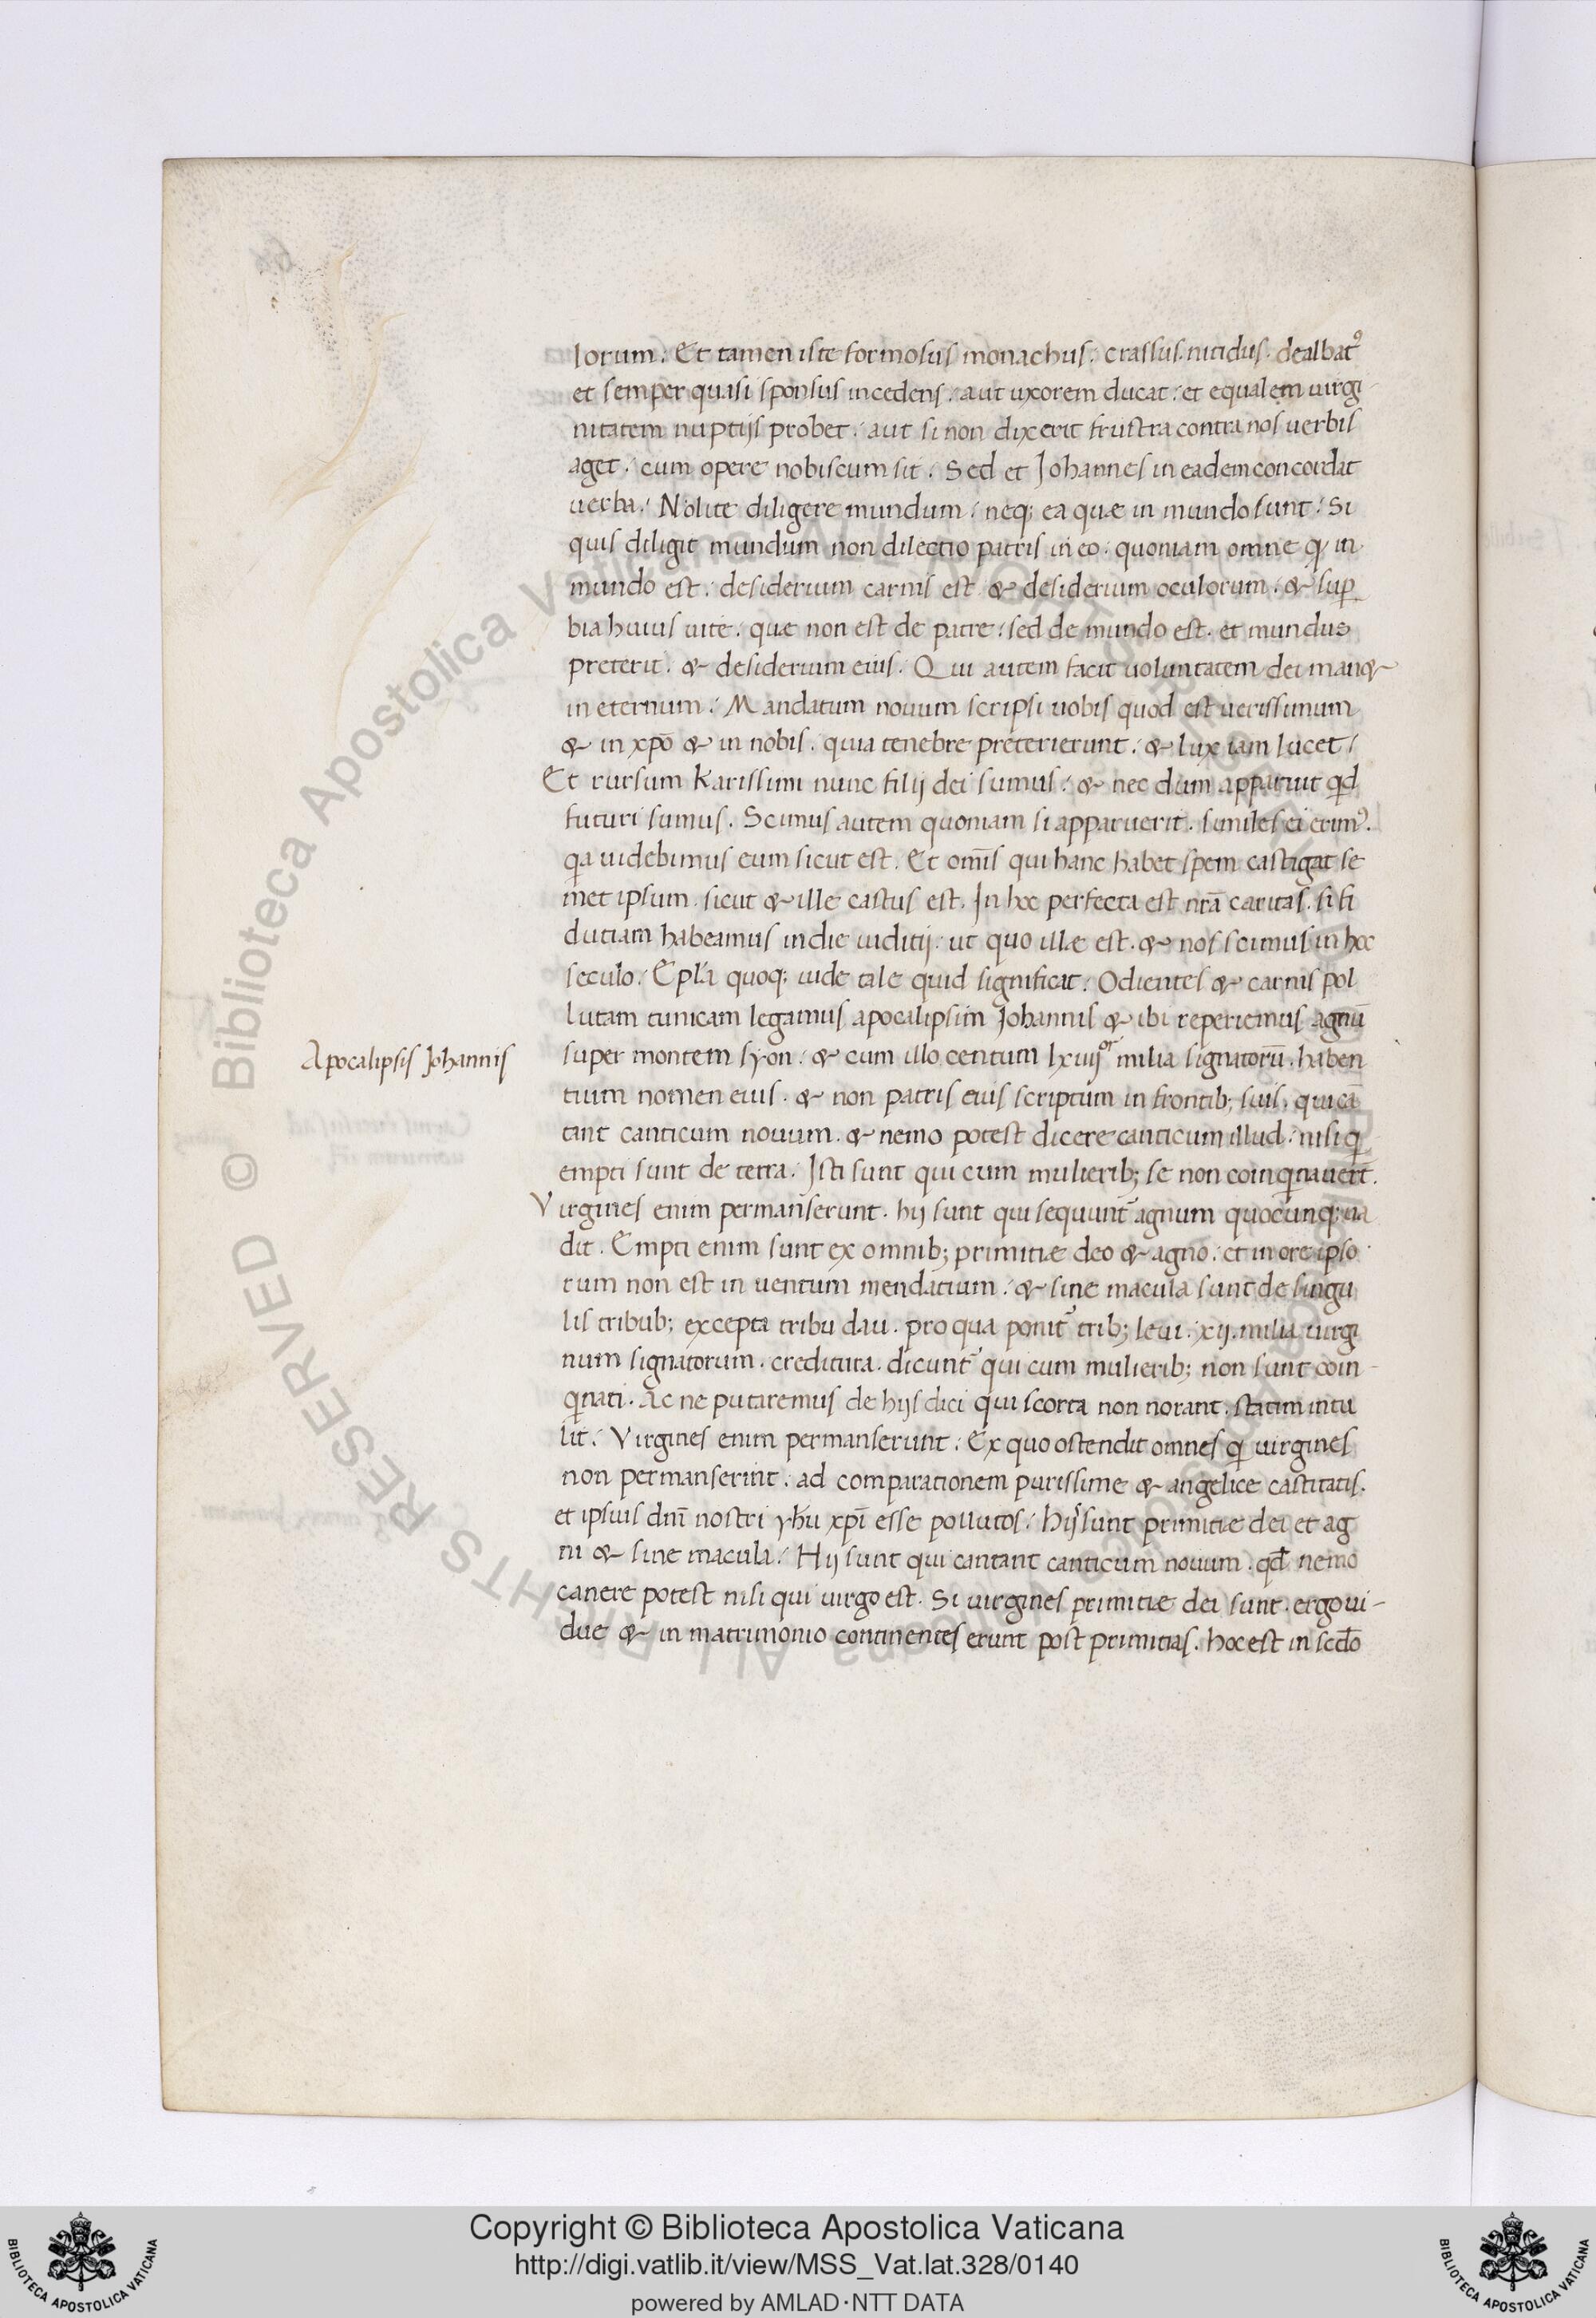 lorum. Et tamen iste formosus monachus. crassus. nitidus. dealbatꝰ
et semper quasi sponsus incedens. aut uxorem ducat. et equalem uirgi-
nitatem nuptijs probet. aut si non dixerit frustra contra nos uerbis
aget. cum opere nobiscum sit. Sed et Johannes in eadem concordat
uerba. Nolite diligere mundum. neq; ea quæ in mundo sunt. Si
quis diligit mundum non dilectio patris in eo. quoniam omne qđ in
mundo est. desiderium carnis est & desiderium oculorum. & suꝑ
bia huius uite. quæ non est de patre. sed de mundo est. et mundus
preterit. & desiderium eius. Qui autem facit uoluntatem dei man&
in eternum. Mandatum nouum scripsi uobis quod est uerissimum
& in xpō & in nobis. quia tenebre preterierunt. & lux iam lucet.
Et rursum karissimi nunc filij dei sumus. & nec dum apparuit qđ
futuri sumus. Scimus autem quoniam si apparuerit. similes ei erimꝰ.
qa uidebimus eum sicut est. Et om̄is qui hanc habet spem castigat se
met ipsum. sicut & ille castus est. In hoc perfecta est nr̄a caritas. si fi
dutiam habeamus in die iuditij. ut quo illæ est. & nos scimus in hoc
seculo. Epl̄a quoq; iude tale quid significat. Odientes & carnis pol
lutam tunicam legamus apocalipsim Johannis & ibi reperiemus agnū
Apocalipsis Johannis
super montem syon. & cum illo centum lxiiijor milia signatorū. haben
tium nomen eius. & non patris eius scriptum in frontib; suis. qui cā
tant canticum nouum. & nemo potest dicere canticum illud. nisi q
empti sunt de terra. Isti sunt qui cum mulierib; se non coinqnauert̄.
Virgines enim permanserunt. hij sunt qui sequunt̄ agnum quocunq; ua
dit. Empti enim sunt ex omnib; primitiæ deo & agno. et in ore ipso
rum non est in uentum mendatium. & sine macula sunt de singu
lis tribub; excepta tribu dau. pro qua ponit̄ trib; leui. xij. milia uirgi
num signatorum. creditura. dicunt̄ qui cum mulierib; non sunt coin-
qnati. Ac ne putaremus de hijs dici qui scorta non norant. statim intu
lit. Virgines enim permanserunt. Ex quo ostendit omnes q uirgines
non permanserint. ad comparationem purissime & angelice castitatis.
et ipsius dn̄i nostri yhū xp̄i esse pollutos. Hij sunt primitiæ dei et ag
ni & sine macula. Hij sunt qui cantant canticum nouum. qđ nemo
canere potest nisi qui uirgo est. Si uirgines primitiæ dei sunt. ergo ui-
due & in matrimonio continentes erunt post primitias. hoc est in scđo
© Biblioteca Apostolica Vaticana ALL RIGHTS RESERVED
Copyright © Biblioteca Apostolica Vaticana
http://digi.vatlib.it/view/MSS_Vat.lat.328/0140
powered by AMLAD·NTT DATA
BIBLIOTECA APOSTOLICA VATICANA
BIBLIOTECA APOSTOLICA VATICANA